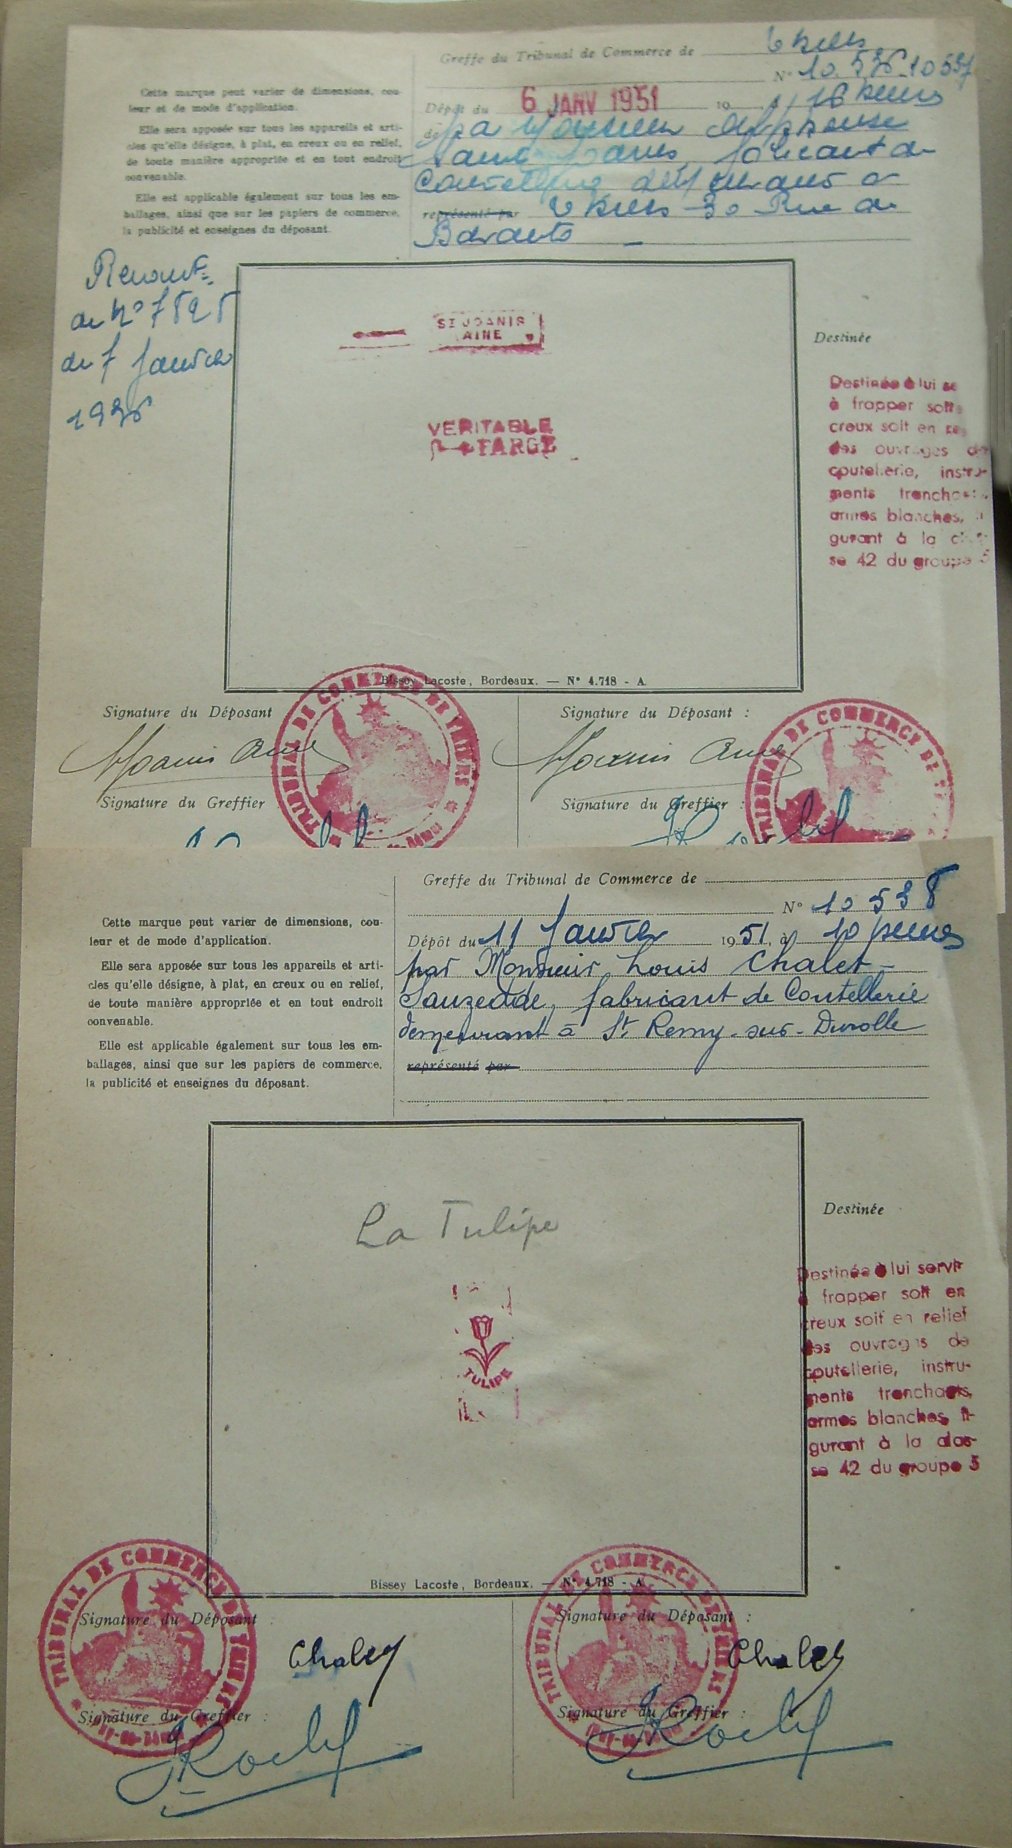 Greffe du Tribunal de Commerce de Thiers
N° 10 536 - 10 537
Cette marque peut varier de dimensions, cou-
leur et de mode d'application.
Elle sera apposée sur tous les appareils et arti-
cles qu'elle désigne, à plat, en creux ou en relief,
de toute manière appropriée et en tout endroit
convenable.
Elle est applicable également sur tous les em-
ballages, ainsi que sur les papiers de commerce,
la publicité et enseignes du déposant.
Dépôt du 6 JANV 1951 19 à 16 heures
de par Monsieur Alphonse
fabricant de
Coutellerie demeurant à
représenté par Thiers 30 Rue de
Barante
Renouvt
du N° 7525
du 7 Janvier
1936
ST JOANIS
AINE
VERITABLE
FARGE
Destinée
Destinée à lui se
à frapper soit
creux soit en re
des ouvrages de
coutellerie, instru-
ments tranchants,
armes blanches, fi
gurant à la clas-
se 42 du groupe 5
Bissey Lacoste, Bordeaux. — N° 4.718 - A
Signature du Déposant
Signature du Déposant :
Joanis Aine
Joanis Aine
Signature du Greffier
Signature du Greffier :
TRIBUNAL DE COMMERCE DE THIERS
TRIBUNAL DE COMMERCE DE
Greffe du Tribunal de Commerce de
N° 10 538
Cette marque peut varier de dimensions, cou-
leur et de mode d'application.
Elle sera apposée sur tous les appareils et arti-
cles qu'elle désigne, à plat, en creux ou en relief,
de toute manière appropriée et en tout endroit
convenable.
Elle est applicable également sur tous les em-
ballages, ainsi que sur les papiers de commerce,
la publicité et enseignes du déposant.
Dépôt du 11 Janvier 1951 à 10 heures
par Monsieur Louis Chalet-
Sauzedde, fabricant de Coutellerie
demeurant à St Remy-sur-Durolle
représenté par
La Tulipe
TULIPE
Destinée
Destinée à lui servir
à frapper soit en
creux soit en relief
des ouvrages de
coutellerie, instru-
ments tranchants,
armes blanches, fi-
gurant à la clas-
se 42 du groupe 5
Bissey Lacoste, Bordeaux. — N° 4.718 - A
TRIBUNAL DE COMMERCE DE THIERS
TRIBUNAL DE COMMERCE DE THIERS
Signature du Déposant :
Signature du Déposant :
Chalet
Chalet
Signature du Greffier :
Signature du Greffier :